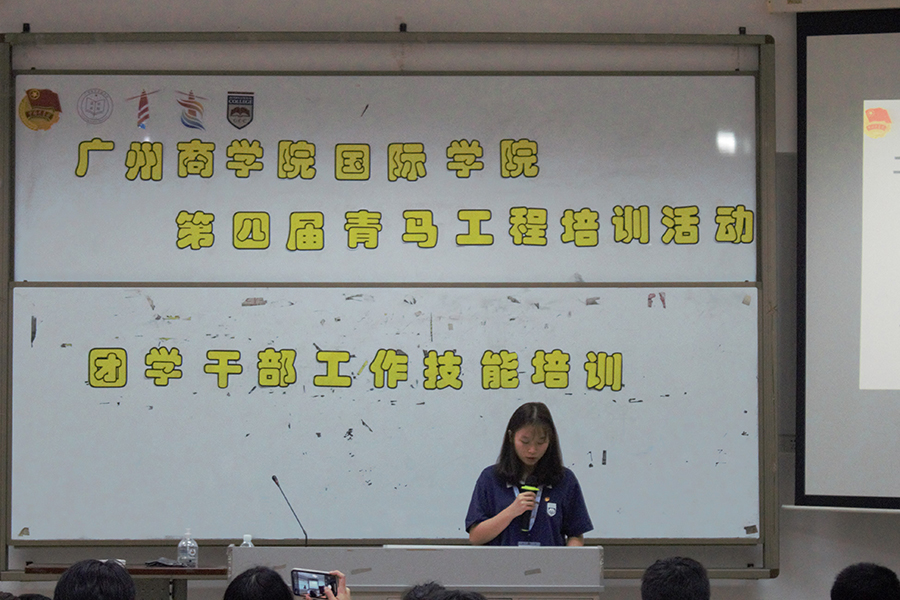 广州商学院国际学院
第四届青马工程培训活动
团学干部工作技能培训
COLLEGE